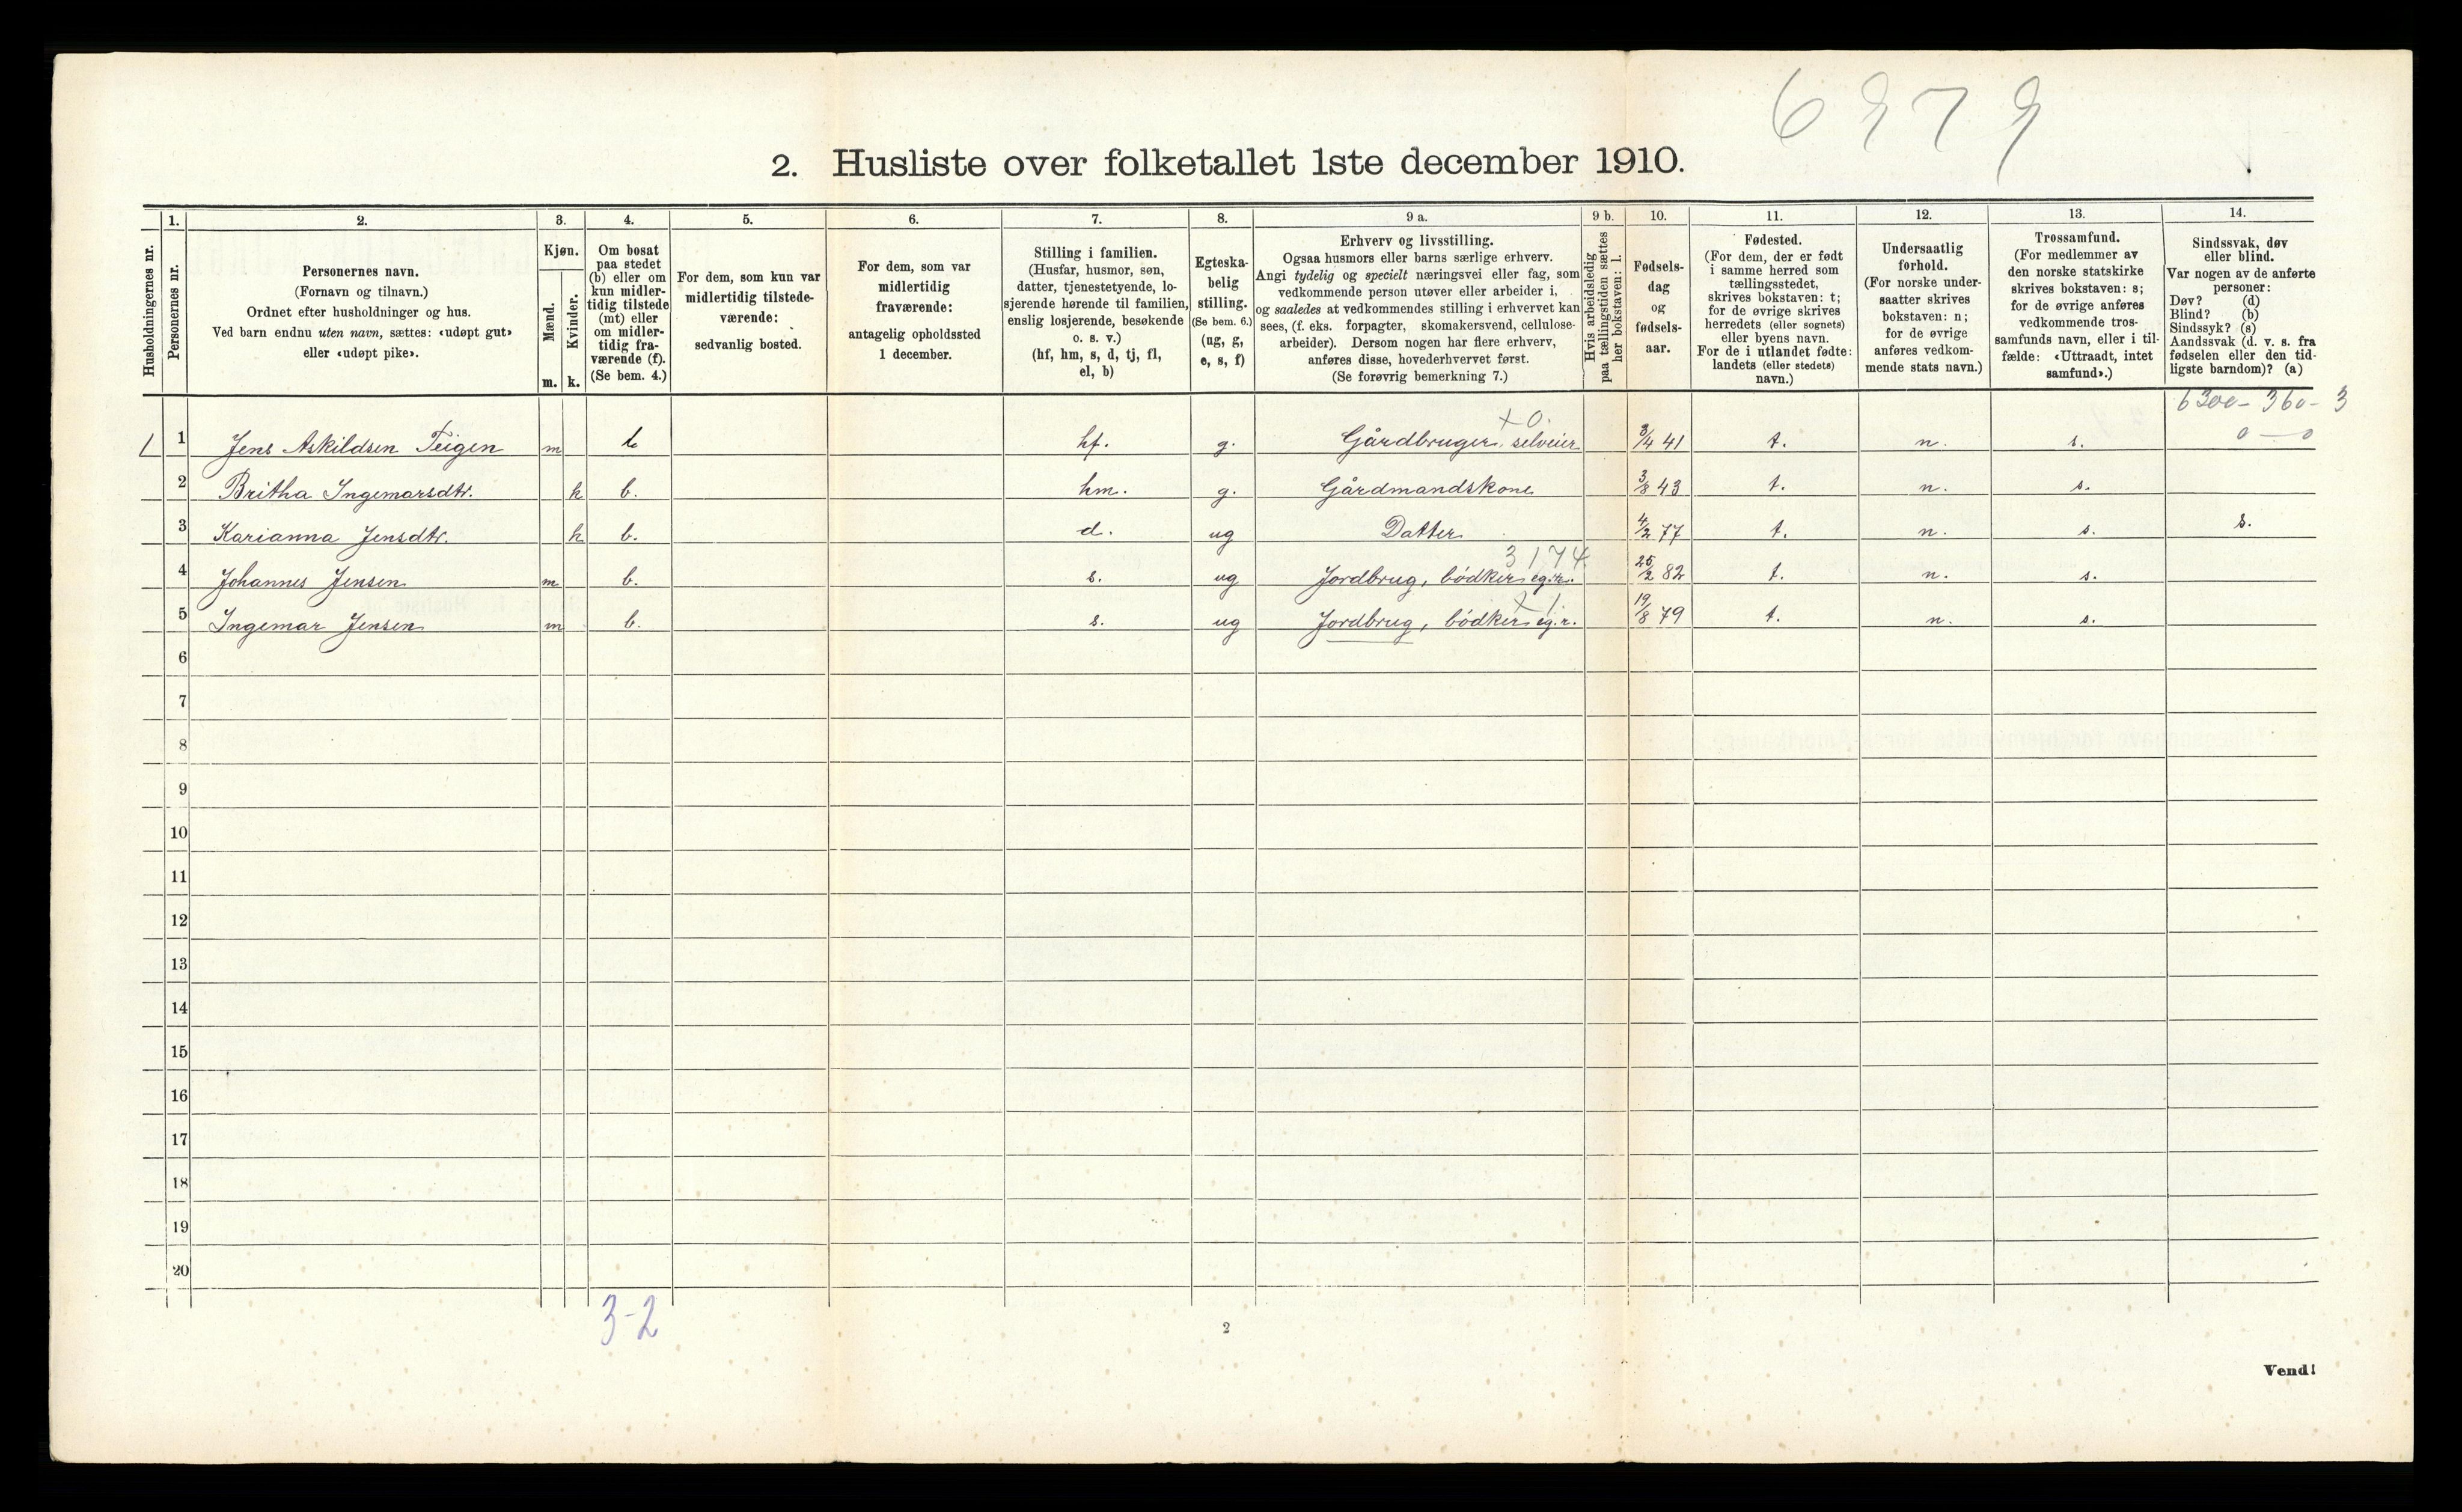 6279
2. Husliste over folketallet 1ste december 1910.
Husholdningernes nr.
1.
Personernes nr.
2.
Personernes navn.
(Fornavn og tilnavn.)
Ordnet efter husholdninger og hus.
Ved barn endnu uten navn, sættes: «udøpt gut»
eller «udøpt pike».
3.
Kjøn.
Mænd.
Kvinder.
m. k.
4.
Om bosat
paa stedet
(b) eller om
kun midler-
tidig tilstede
(mt) eller
om midler-
tidig fra-
værende (f).
(Se bem. 4.)
5.
For dem, som kun var
midlertidig tilstede-
værende:
sedvanlig bosted.
6.
For dem, som var
midlertidig
fraværende:
antagelig opholdssted
1 december.
7.
Stilling i familien.
(Husfar, husmor, søn,
datter, tjenestetyende, lo-
sjerende hørende til familien,
enslig losjerende, besøkende
o. s. v.)
(hf, hm, s, d, tj, fl,
el, b)
8.
Egteska-
belig
stilling.
(Se bem. 6.)
(ug, g,
e, s, f)
9 a.
Erhverv og livsstilling.
Ogsaa husmors eller barns særlige erhverv.
Angi tydelig og specielt næringsvei eller fag, som
vedkommende person utøver eller arbeider i,
og saaledes at vedkommendes stilling i erhvervet kan
sees, (f. eks. forpagter, skomakersvend, cellulose-
arbeider). Dersom nogen har flere erhverv,
anføres disse, hovederhvervet først.
(Se forøvrig bemerkning 7.)
9 b.
Hvis arbeidsledig
paa tællingstiden sættes
her bokstaven: l.
10.
Fødsels-
dag
og
fødsels-
aar.
11.
Fødested.
(For dem, der er født
i samme herred som
tællingsstedet,
skrives bokstaven: t;
for de øvrige skrives
herredets (eller sognets)
eller byens navn.
For de i utlandet fødte:
landets (eller stedets)
navn.)
12.
Undersaatlig
forhold.
(For norske under-
saatter skrives
bokstaven: n;
for de øvrige
anføres vedkom-
mende stats navn.)
13.
Trossamfund.
(For medlemmer av
den norske statskirke
skrives bokstaven: s;
for de øvrige anføres
vedkommende tros-
samfunds navn, eller i til-
fælde: «Uttraadt, intet
samfund».)
14.
Sindssvak, døv
eller blind.
Var nogen av de anførte
personer:
Døv? (d)
Blind? (b)
Sindssyk? (s)
Aandssvak (d. v. s. fra
fødselen eller den tid-
ligste barndom)? (a)
6300 - 360 - 3
0 — 0
x 0.
1 1 Jens Askildsen Teigen m b hf. g. Gårdbruger, selveier 3/4 41 t. n. s.
2 Britha Ingemarsdtr. k b. hm. g. Gårdmandskone 3/8 43 t. n. s.
3 Karianna Jensdtr. k b. d. ug Datter 4/2 77 t. n. s. s.
3174
4 Johannes Jensen m b. s. ug Jordbrug, bødker eg.r. 25/2 82 t. n. s.
x 1
5 Ingemar Jensen m b. s. ug Jordbrug, bødker eg.r. 19/8 79 t. n. s.
6
7
8
9
10
11
12
13
14
15
16
17
18
19
20
3-2
2
Vend!